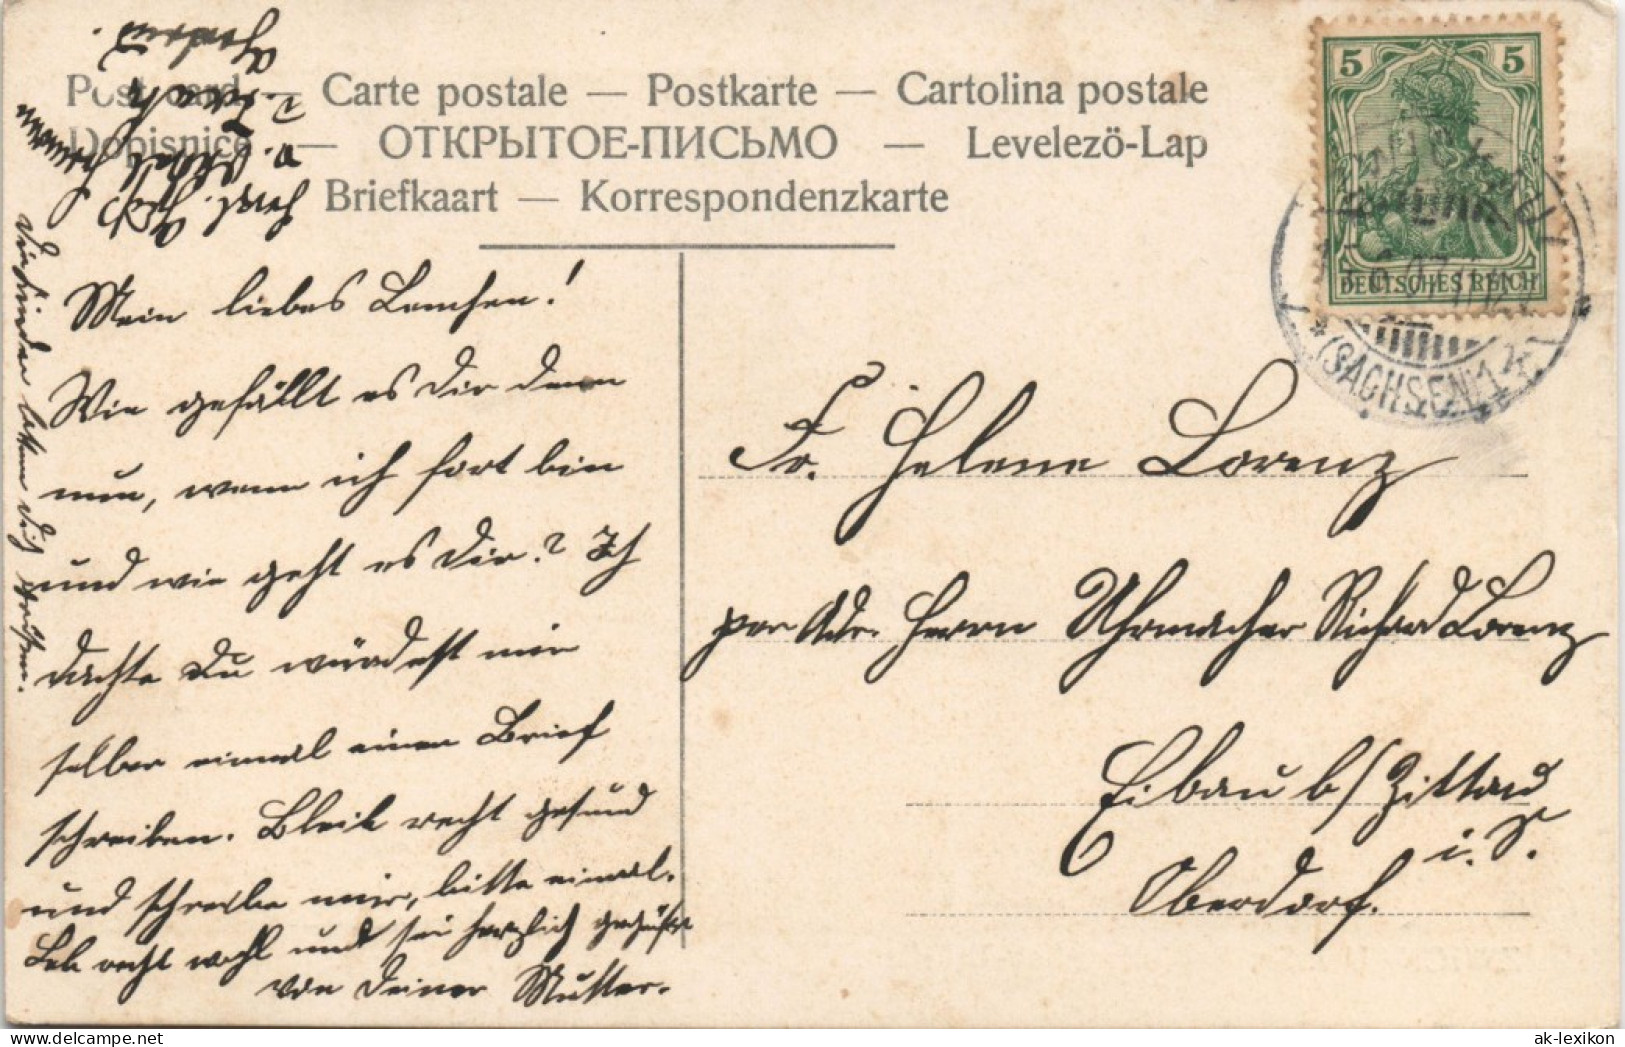 Postcard — Carte postale — Postkarte — Cartolina postale
Dopisnice — ОТКРЫТОЕ-ПИСЬМО — Levelező-Lap
Briefkaart — Korrespondenzkarte
5 5
DEUTSCHES REICH
(SACHSEN) 1
Mein liebes Lenchen!
Wie gefällt es Dir denn
nun, wenn ich fort bin
und wie geht es Dir? Ich
dachte Du würdest mir
selber einmal einen Brief
schreiben. Bleib recht gesund
und schreibe mir, bitte einmal.
Leb recht wohl und sei herzlich gegrüßt
von Deiner Mutter.
Die Kinder lassen Dich grüßen.
Fr. Helene Lorenz
per Adr. Herrn Uhrmacher Richard Lorenz
Eibau b/ Zittau
i. S.
Oberdorf.
ak-lexikon